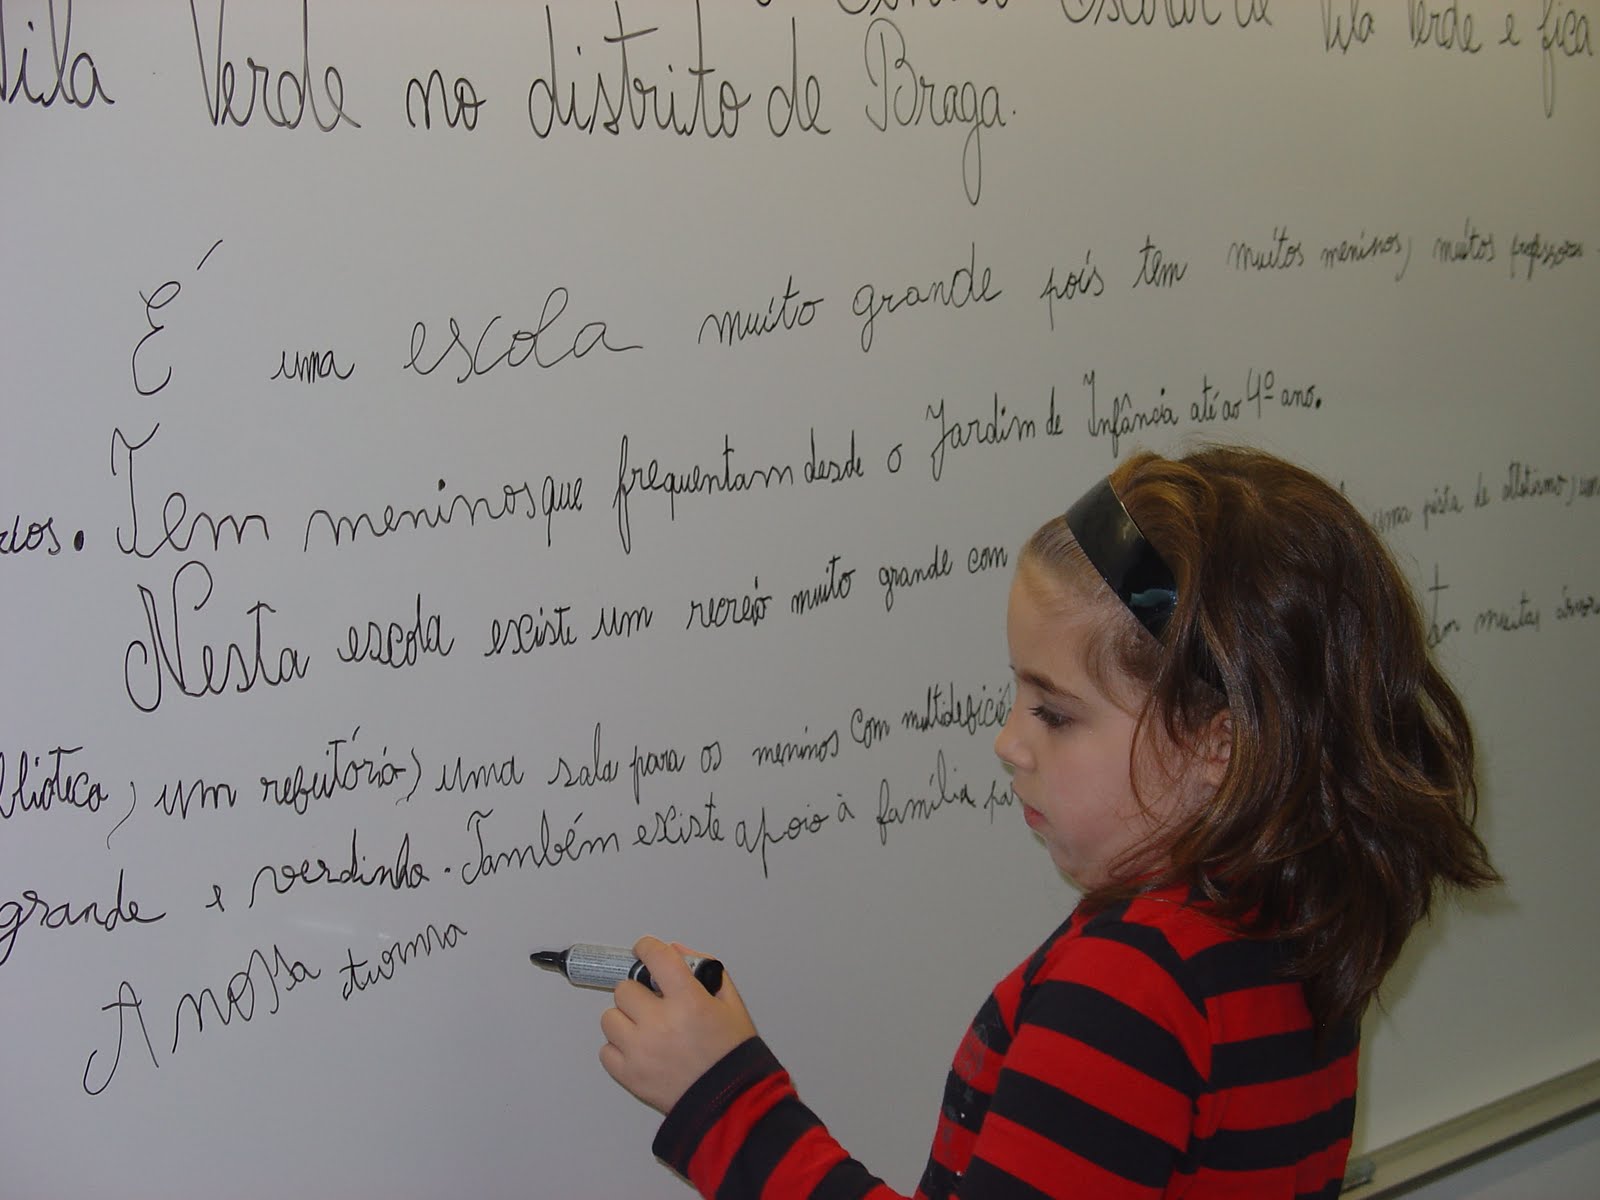 Vila Verde e fica
Vila Verde no distrito de Braga.
É uma escola muito grande pois tem muitos meninos, muitos
rios. Tem meninos que frequentam desde o Jardim de Infância até ao 4º ano.
Nesta escola existe um recreio muito grande com uma pista de atletismo, um
tem muitas
blioteca, um refeitório, uma sala para os meninos com multidefici
grande e verdinho. Também existe apoio à família pa
A nossa turma